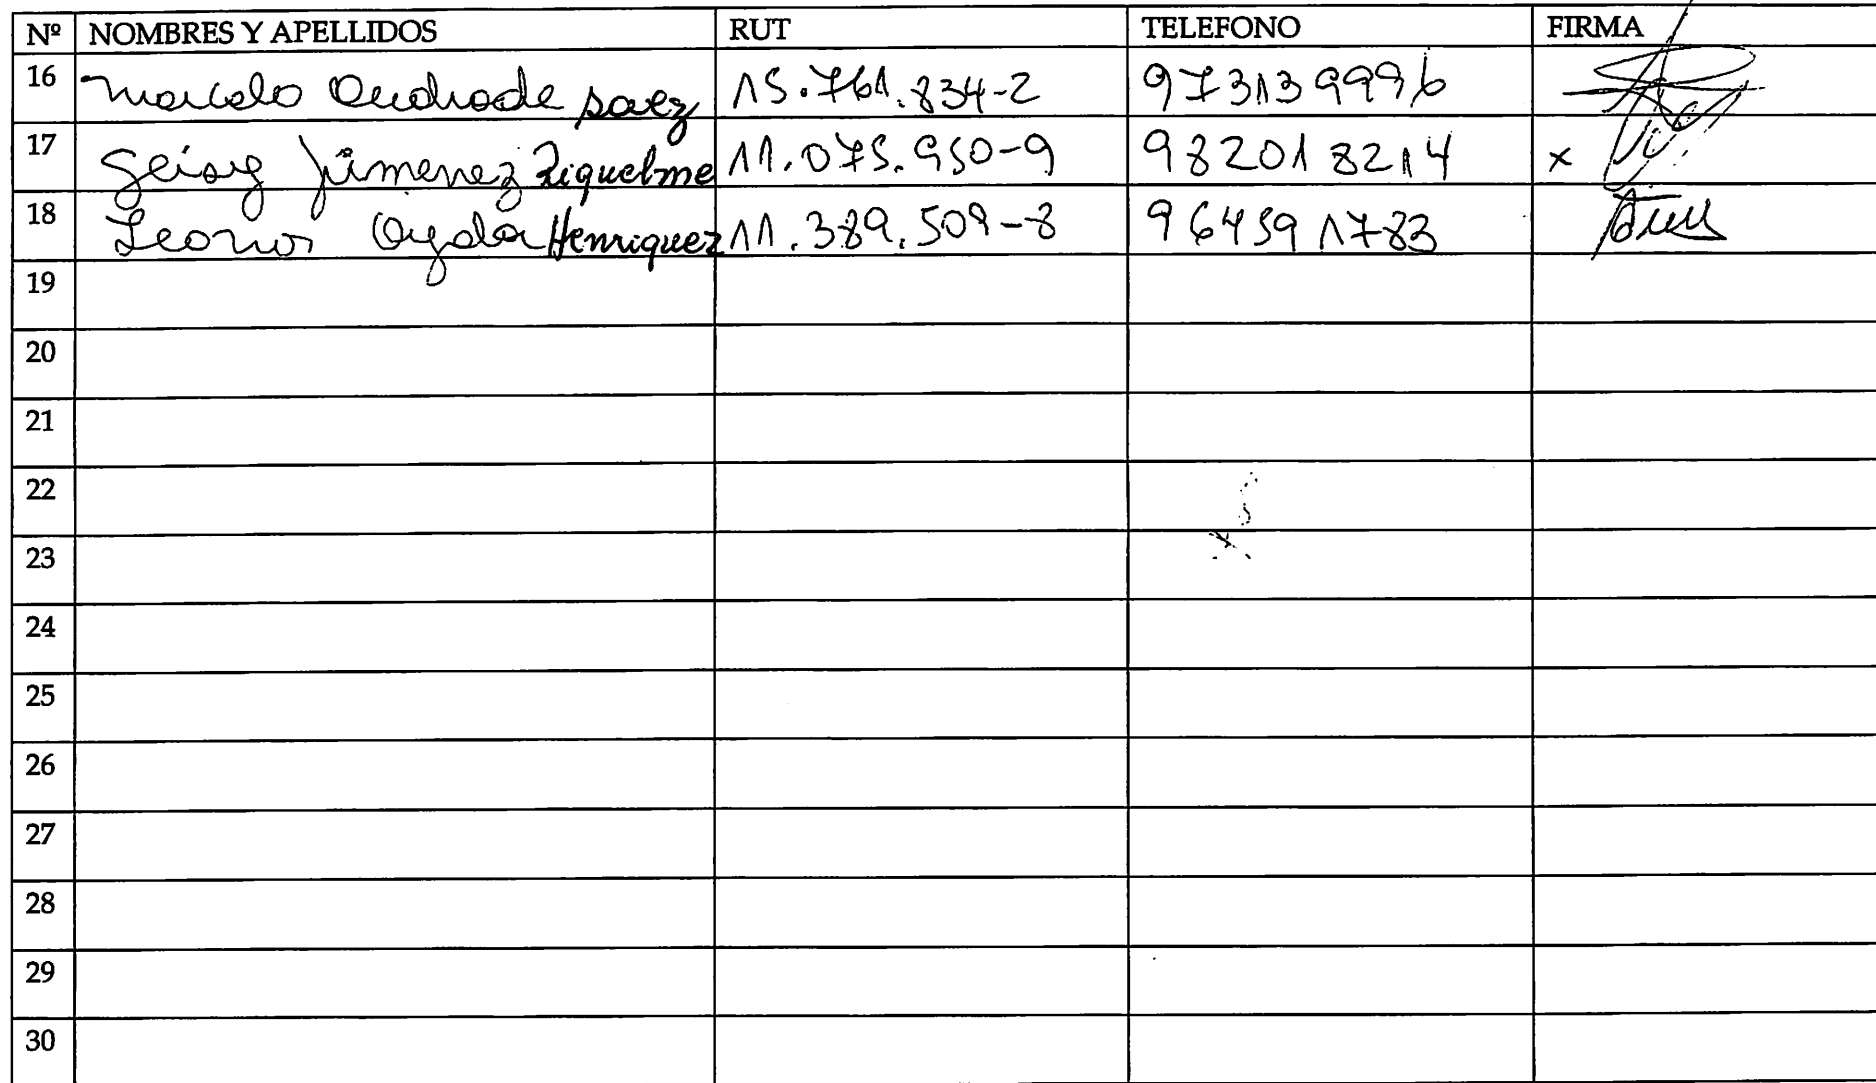 Nº NOMBRES Y APELLIDOS RUT TELEFONO FIRMA
16 Marcelo Andrade Saez 15.761.834-2 973139996
17 Geisy Jimenez Riquelme 11.075.950-9 982018214 x
18 Leonor Ojeda Henriquez 11.389.509-8 964591783
19
20
21
22
23
24
25
26
27
28
29
30